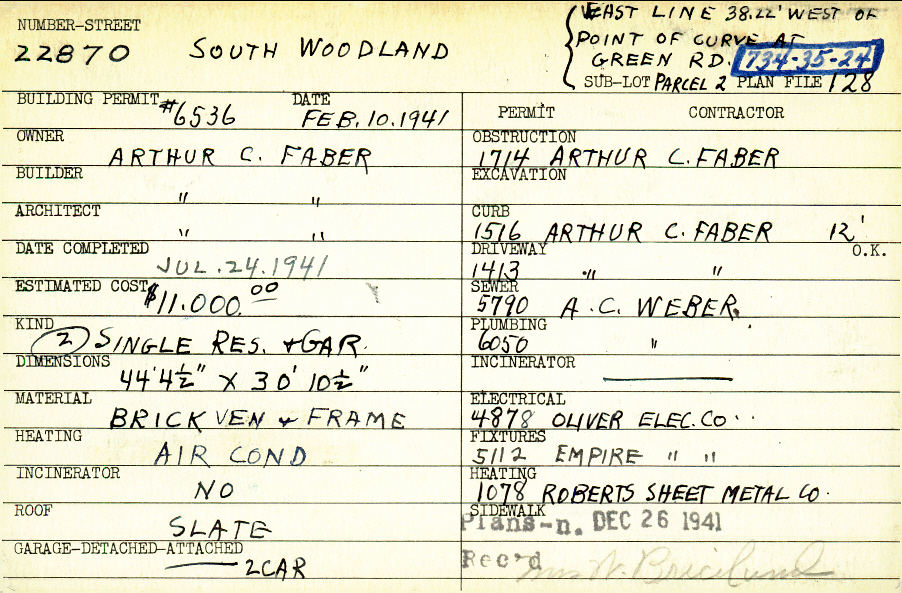 NUMBER-STREET
22870 SOUTH WOODLAND
EAST LINE 38.22' WEST OF
POINT OF CURVE AT
GREEN RD. 734-35-24
SUB-LOT PARCEL 2 PLAN FILE 128
BUILDING PERMIT #6536 DATE FEB. 10. 1941
OWNER
ARTHUR C. FABER
BUILDER
" "
ARCHITECT
" "
DATE COMPLETED
JUL. 24. 1941
ESTIMATED COST $11.000.00
KIND
(2) SINGLE RES. + GAR.
DIMENSIONS
44' 4 1/2" X 30' 10 1/2"
MATERIAL
BRICK VEN + FRAME
HEATING
AIR COND
INCINERATOR
NO
ROOF
SLATE
GARAGE-DETACHED-ATTACHED
2 CAR
PERMIT CONTRACTOR
OBSTRUCTION
1714 ARTHUR C. FABER
EXCAVATION
CURB
1516 ARTHUR C. FABER 12'
DRIVEWAY O.K.
1413 " "
SEWER
5790 A. C. WEBER.
PLUMBING
6050 "
INCINERATOR
ELECTRICAL
4878 OLIVER ELEC. CO.
FIXTURES
5112 EMPIRE " "
HEATING
1078 ROBERTS SHEET METAL CO.
SIDEWALK
Plans-n. DEC 26 1941
Record